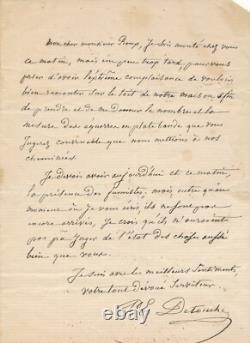 mon cher monsieur Pioux, Je suis monté chez vous
ce matin, mais un peu trop tard, pour vous
prier d'avoir l'extrême complaisance de vouloir
bien remonter sur le toit de notre maison afin
de prendre et de me donner le nombre et la
mesure des équerres en platebande que vous
Jugerez convenable que nous mettions à nos
cheminées.
Je devais avoir aujourd'hui et ce matin,
la présence des fumistes, mais outre qu'au
moment où je vous écris ils ne sont pas
encore arrivés, Je crois qu'ils n'auraient
pas pu Juger de l'état des choses aussi
bien que vous.
Je suis avec les meilleurs Sentiments,
votre tout dévoué Serviteur
Detouche